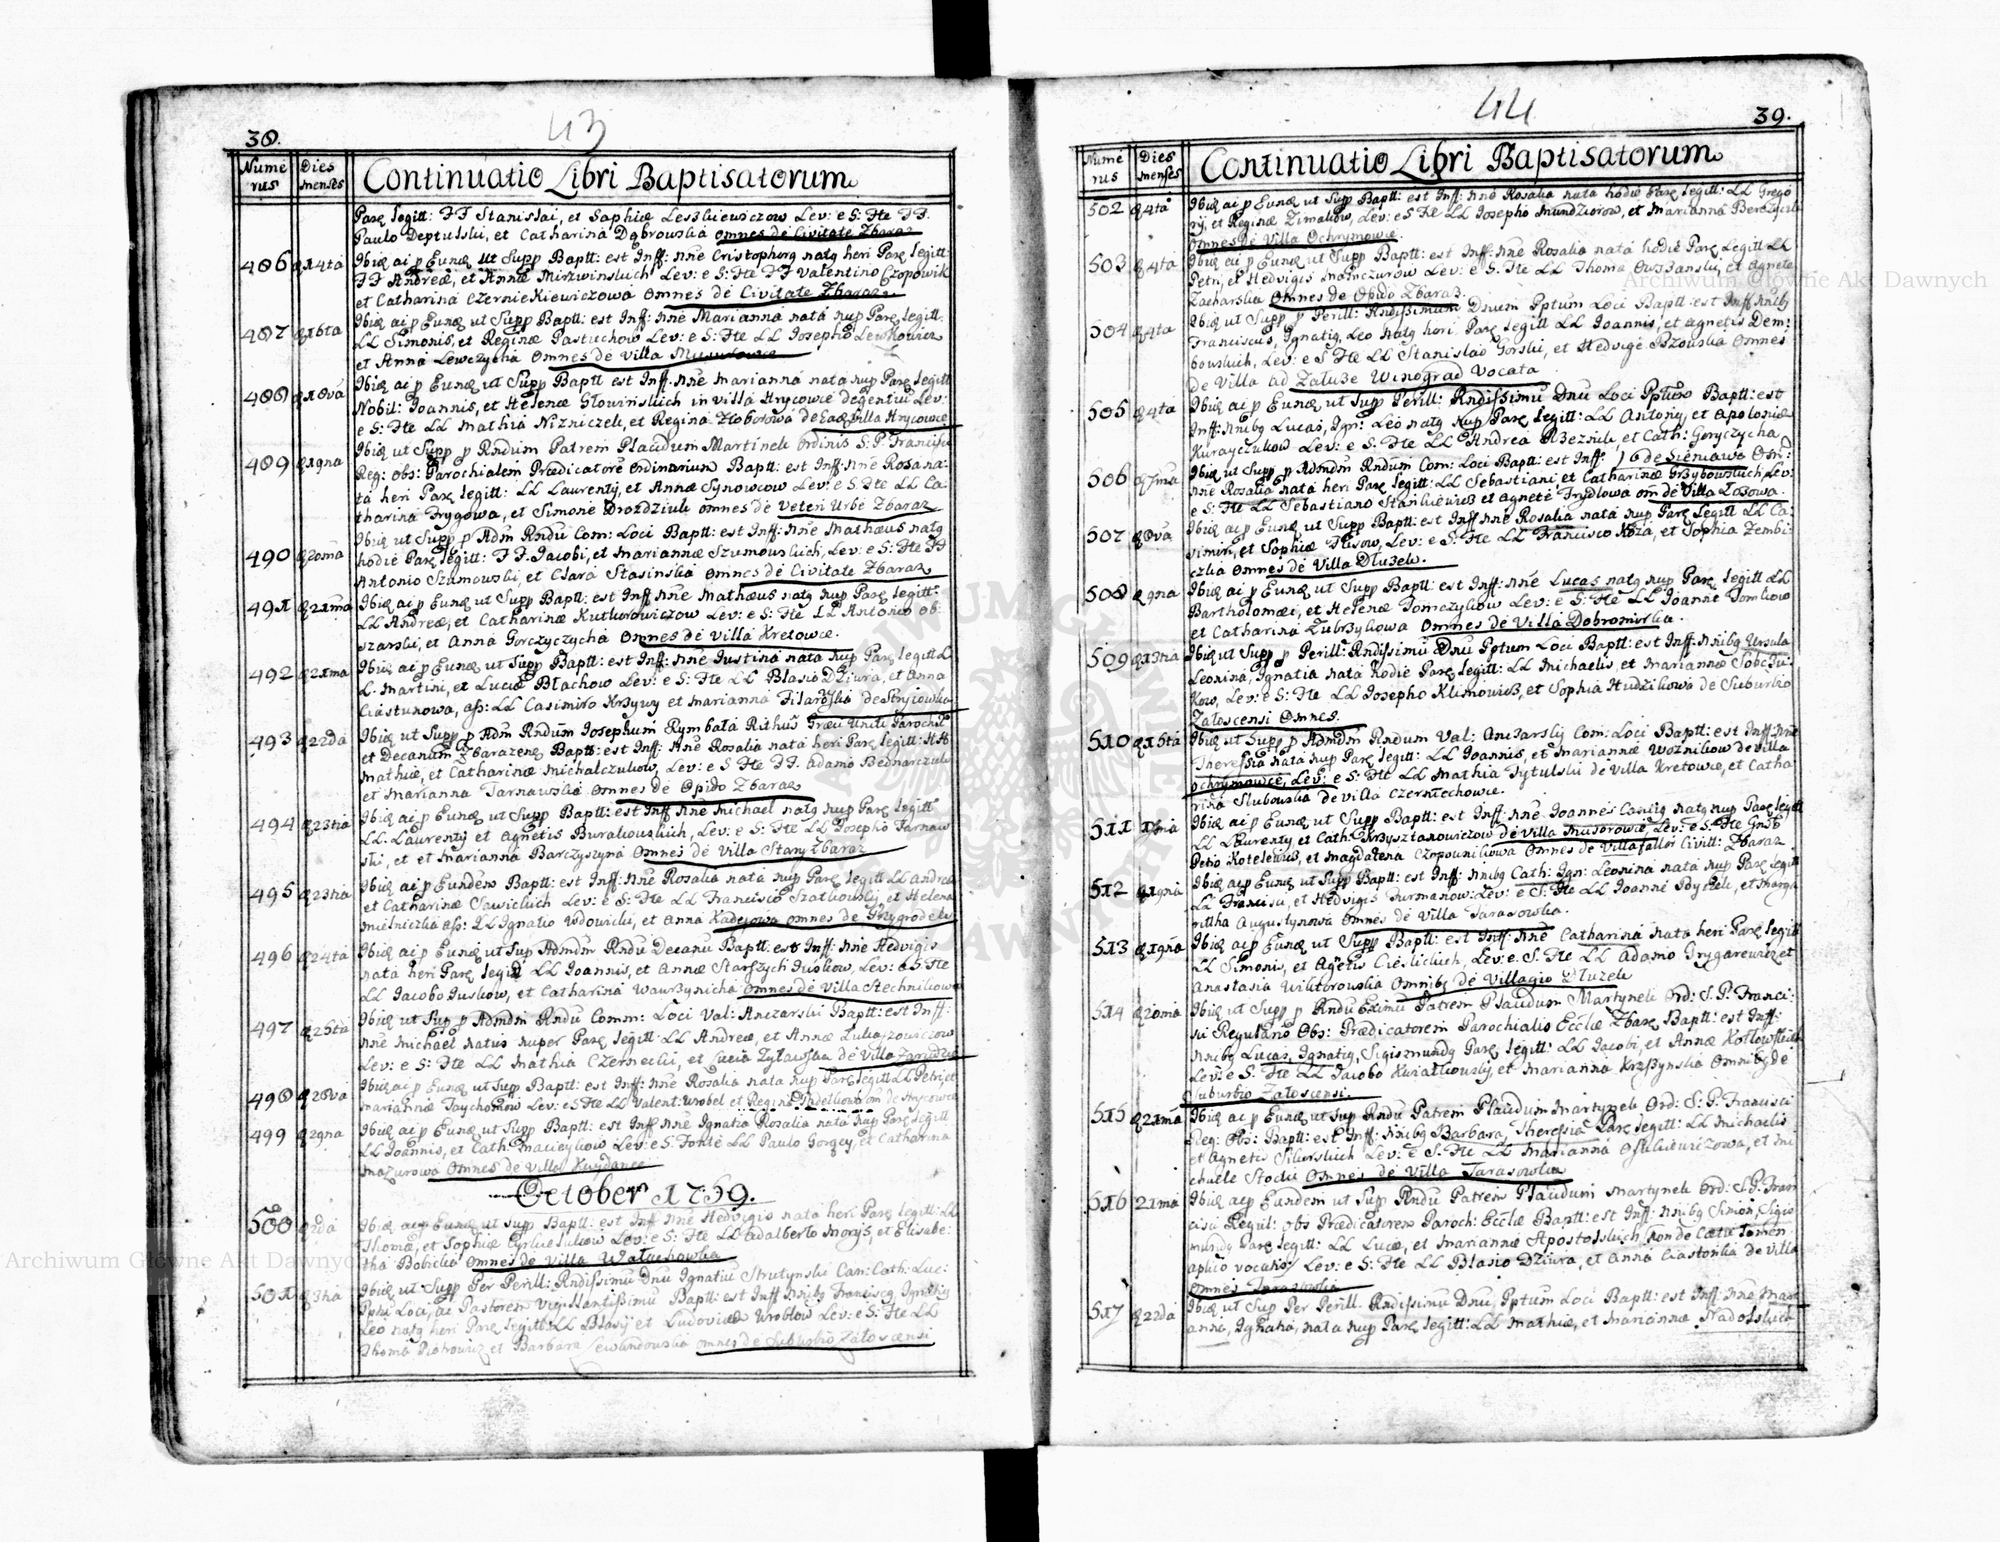 43
38.
Numerus
Dies menses
Continuatio Libri Baptisatorum
Parę legitt: FF Stanislai, et Sophiæ Leszkiewiczow Lev: e S: Fte FF.
Paulo Deptulski, et Catharina Dąbrowska Omnes de Civitate Zbaraz
486 d 14ta Ibid ai p Eund ut Supp Baptt: est Inff: nne Cristophorg natg heri Parę legitt:
FF Andreæ, et Annæ Mirzwinskich Lev: e S: Fte FF Valentino Czopowik
et Catharina Czerniekiewiczowa Omnes de Civitate Zbaraz
487 d 16ta Ibid ai p Eund ut Supp Baptt: est Inff: nne Marianna nata nup Parę legitt.
LL Simonis, et Reginæ Pastuchow Lev: e S: Fte LL Josepho Lewkowicz
et Anna Lewczycha Omnes de Villa
488 d 18va Ibid ai p Eund ut Supp Baptt est Inff: nne Marianna nata nup Parę legitt
Nobil: Joannis, et Helenæ Głowinskich in Villa Hrycowce degentiu Lev:
e S: Fte LL Mathia Nizniczek, et Regina Zioborowa de Eadę Villa Hrycowce
489 d 19na Ibid ut Supp p Rndum Patrem Placidum Martinek Ordinis S: P: Francisci
Reg: Obs: Parochialem Prædicatore Ordinarium Baptt: est Inff: nne Rosa na:
ta heri Parę legitt: LL Laurentij, et Annæ Synowcow Lev: e S: Fte LL Ca:
tharina Frygowa, et Simone Drozdziuk omnes de Veteri Urbe Zbaraz
490 d 20ma Ibid ut Supp p Adm Rndu Com: Loci Baptt: est Inff: nne Mathæus natg
hodie Parę legitt: FF: Jacobi, et Mariannæ Szumowskich, Lev: e S: Fte FF
Antonio Szumowski, et Clara Stasinska Omnes de Civitate Zbaraz
491 d 21ma Ibid ai p Eund ut Supp Baptt: est Inff nne Mathæus natg nup Parę legitt:
LL Andreæ, et Catharinæ Kutkurowiczow Lev: e S: Fte LL Antonio Ob:
szarski, et Anna Gorczyczycha Omnes de Villa Kretowce.
492 d 21ma Ibid ai p Eund ut Supp Baptt: est Inff: nne Justina nata nup Parę legitt L
L. Martini, et Luciæ Błachow Lev: e S: Fte LL Blasio Dziura, et Anna
Ciastunowa, ass: LL Casimiro Krzywy et Marianna Filarska de Stryiowka
493 d 22da Ibid ut Supp p Adm Rndum Josephum Rymbała Rithus Græci Uniti Parochu
et Decanum Zbarazens Baptt: est Inff: nne Rosalia nata heri Parę legitt: HH
Mathiæ, et Catharinæ Michalczukow, Lev: e S Fte FF. Adamo Bednarczuk
et Marianna Tarnawska Omnes de Opido Zbaraz
494 d 23tia Ibid ai p Eund ut Supp Baptt: est Inff nne Michael natg nup Parę legitt
LL. Laurentij et Agnetis Burakowskich, Lev: e S: Fte LL Josepho Tarnaw
ski, et et Marianna Barczyszyna Omnes de Villa Stary Zbaraz
495 d 23tia Ibid ai p Eundem Baptt: est Inff: nne Rosalia nata nup Parę legitt LL Andreæ
et Catharinæ Sawickich Lev: e S: Fte LL Francisco Szatkowskij et Helena
Mielniczka ass: LL Ignatio Wdowicki, et Anna Kadejowa omnes de Przygrodek
496 d 24ta Ibid ai p Eund ut Sup Admdm Rndu Decanu Baptt: est Inff: nne Hedvigis
nata heri Parę legitt LL Joannis, et Annæ Starszych Juskow, Lev: e S: Fte
LL Jacobo Juskow, et Catharina Wawrzynicha Omnes de Villa Stechnikowce
497 d 25ta Ibid ut Sup p Admdm Rndu Comm: Loci Val: Anczarski Baptt: est Inff:
nne Michael natus nuper Parę legitt: LL Andreæ, et Annæ
Lev: e S: Fte LL Mathia Czernecki, et Lucia Zyławska de Villa Zarudzie
498 d 28va Ibid ai p Eund ut Supp Baptt: est Inff: nne Rosalia nata nup Parę legitt LL Petri, et
Mariannæ Taychomow Lev: e S Fte LL Valent: Wrobel et Regina om de Hrycowce
499 d 29na Ibid ai p Eund ut Supp Baptt: est Inff nne Ignatia Rosalia nata nup Parę legitt
LL Joannis, et Cath: Macieykow Lev: e S: Fonte LL Paulo Gorgey, et Catharina
Mazurowa Omnes de Villa Kuydance
October 1759.
500 d 2da Ibid ai p Eund ut Supp Baptt: est Inff nne Hedvigis nata heri Parę legitt: LL
Thomæ, et Sophiæ Lev: e S: Fte LL Adalberto Morys, et Elisabe:
tha Bobicka Omnes de Villa Wałachowka
501 d 3tia Ibid ut Supp Per Perill: Rndissimu Dnu Ignatiu Strutynski Can: Cath: Luc:
Pptu Loci, ac Pastorem Vigilantissimu Baptt: est Inff nnibg Franciscg, Ignatig
Leo natg heri Parę legitt: LL Blasij et Ludovicæ Wroblow Lev: e S: Fte LL
Thoma Piotrowicz et Barbara Lewandowska omnes de Suburbio Załoscensi
44
39.
Numerus
Dies menses
Continuatio Libri Baptisatorum
502 d 4ta Ibid ai p Eund ut Supp Baptt: est Inff: nne Rosalia nata hodie Parę legitt: LL Grego
rij, et Reginæ Zimakow, Lev: e S Fte LL Josepho Mundziorow, et Marianna Berczycha
Omnes de Villa Ochrymowce.
503 d 4ta Ibid ai p Eund ut Supp Baptt: est Inff: nne Rosalia nata hodie Parę legitt LL
Petri, et Hedvigis Mainczurow Lev: e S: Fte LL Thoma Owszanskij et Agnete
Zacharska Omnes de Opido Zbaraz.
504 d 4ta Ibid ut Supp p Perill: Rndissimum Dnum Pptum Loci Baptt: est Inff nnibg
Franciscus, Ignatig, Leo natg heri Parę legitt LL Joannis, et Agnetis Dem:
bowskich, Lev: e S Fte LL Stanislao Gorski, et Hedvige Bzowska Omnes
de Villa ad Załuze Winograd Vocata
505 d 4ta Ibid ai p Eund ut Supp Perill: Rndissimu Dnu Loci Pptum Baptt: est
Inff: nnibg Lucas, Ign: Leo natg nup Parę legitt: LL Antonij, et Apoloniæ
Kurayczukow Lev: e S: Fte LL Andrea Rzeznik et Cath: Goryczycha
506 d 7ma Ibid ut Supp p Admdm Rndum Com: Loci Baptt: est Inff: de Sieniawa Om:
nne Rosalia nata heri Parę legitt: LL Sebastiani et Catharinæ Grzybowskich Lev:
e S: Fte LL Sebastiano Stankiewicz et Agnete Frydlowa om de Villa Łozowa.
507 d 8va Ibid ai p Eund ut Supp Baptt: est Inff nne Rosalia nata nup Parę legitt LL Ca:
simiri, et Sophiæ Flisow, Lev: e S: Fte LL Francisco Koza, et Sophia Zembi:
czka Omnes de Villa Dłuzek.
508 d 9na Ibid ai p Eund ut Supp Baptt: est Inff: nne Lucas natg nup Parę legitt LL
Bartholomæi, et Helenæ Tomczykow Lev: e S: Fte LL Joanne Tomkow
et Catharina Zubrzykowa Omnes de Villa Dobromirka.
509 d 13tia Ibid ut Supp p Perill: Rndissimu Dnu Pptum Loci Baptt: est Inff: nnibg Ursula
Leonina, Ignatia nata hodie Parę legitt: LL Michaelis, et Mariannæ
Kow, Lev: e S: Fte LL Josepho Klimowicz, et Sophia Hudzikowa de Suburbio
Załoscensi Omnes.
510 d 15ta Ibid ut Supp p Admdm Rndum Val: Anczarskij Com: Loci Baptt: est Inff: nne
Theressia nata nup Parę legitt: LL Joannis, et Mariannæ Woznikow de Villa
Ochrymowce, Lev: e S: Fte LL Mathia Tytulski de Villa Kretowce, et Catha
rina Slubowska de Villa Czerniechowce.
511 17ma Ibid ai p Eund ut Supp Baptt: est Inff: nne Joannes Cantig natg nup Parę legitt
LL Laurentij et Cath: Krzysztanowiczow de Villa Musorowce, Lev: e S: Fte Gnso
Petro Kotelewicz, et Magdalena Czopownikowa Omnes de Villa Civitt: Zbaraz
512 d 19na Ibid ai p Eund ut Supp Baptt: est Inff: nnibg Cath: Ign: Leonina nata nup Parę legitt
LL Francisci, et Hedvigis Furmanow: Lev: e S: Fte LL Joanne Dyczek, et Marga
rittha Augustynowa Omnes de Villa Tarasowka.
513 d 19na Ibid ai p Eund ut Supp Baptt: est Inff: nne Catharina nata heri Parę legitt
LL Simonis, et Agnetis Ciesiclich, Lev: e. S: Fte LL Adamo Grygarewicz et
Anastasia Wiktorowska Omnibg de Villagio Dłuzek
514 d 20ma Ibid ut Supp p Rndu Eximu Patrem Placidum Martynek Ord: S: P: Franci:
sci Regulano Obs: Prædicatorem Parochialis Eccliæ Zbarz Baptt: est Inff:
nnibg Lucas, Ignatig, Sigismundg Parę legitt: LL Jacobi, et Annæ
Lev: e S: Fte LL Jacobo Kwiatkowskij et Marianna Krzszynska Omnibg de
Suburbio Załoscensi.
515 d 21ma Ibid ai p Eund ut Sup Rndu Patrem Placidum Martynek Ord: S: P: Francisci
Reg: Obs: Baptt: est Inff: nnibg Barbara, Theressia Parę legitt: LL Michaelis
et Agnetis Sikorskich Lev: e S: Fte LL Marianna, et Mi
chaele Stocki Omnes de Villa Tarasowka
516 21ma Ibid ai p Eundem ut Supp Rndu Patrem Placidum Martynek Ord: S: P: Fran
cisci Regul: Obs Prædicatorem Paroch: Eccliæ Baptt: est Inff: nnibg Simon, Sigis
mundg Parę legitt: LL Lucæ, et Mariannæ Apostolskich
vocatis Lev: e S: Fte LL Blasio Dziura, et Anna Ciastonka de Villa
Omnes Tarasowka
517 d 22da Ibid ut Sup Per Perill. Rndissimu Dnu, Pptum Loci Baptt: est Inff: nne Mari
anna, Ignatia, nata nup Parę legitt: LL Mathiæ, et Mariannæ Nadolskich
Archiwum Główne Akt Dawnych
Archiwum Główne Akt Dawnych